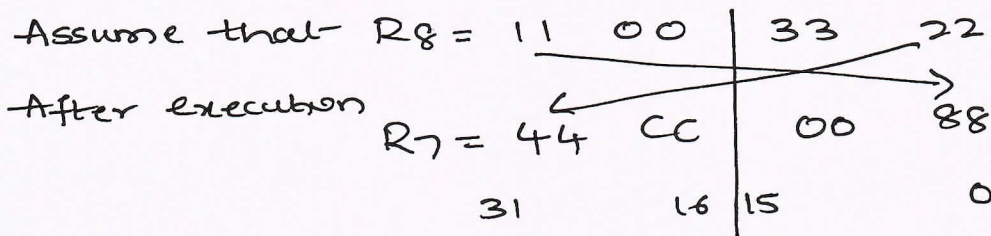 Assume that R8 = 11 00 33 22
After execution
R7 = 44 CC 00 88
31 16 15 0